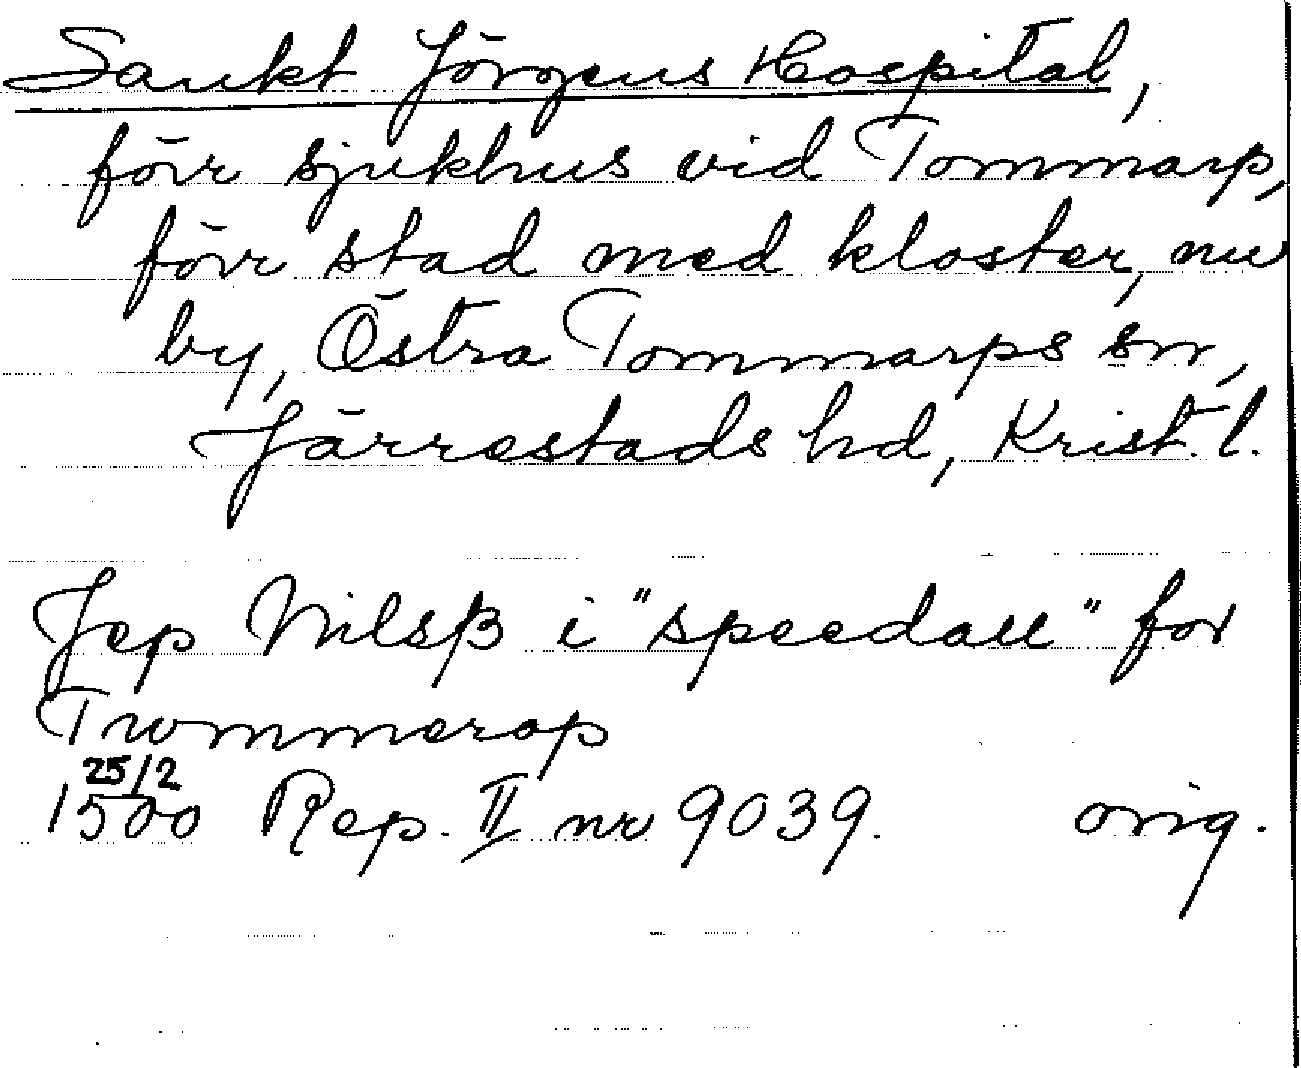 Sankt Jörgens Hospital,
förr sjukhus vid Tommarp,
förr stad med kloster, nu
by, Östra Tommarps sn,
Järrestads hd, Krist. l.
Jep Nilsβ i "speedall" for
Twmmerop
25/2
1500 Rep. II nr 9039. orig.